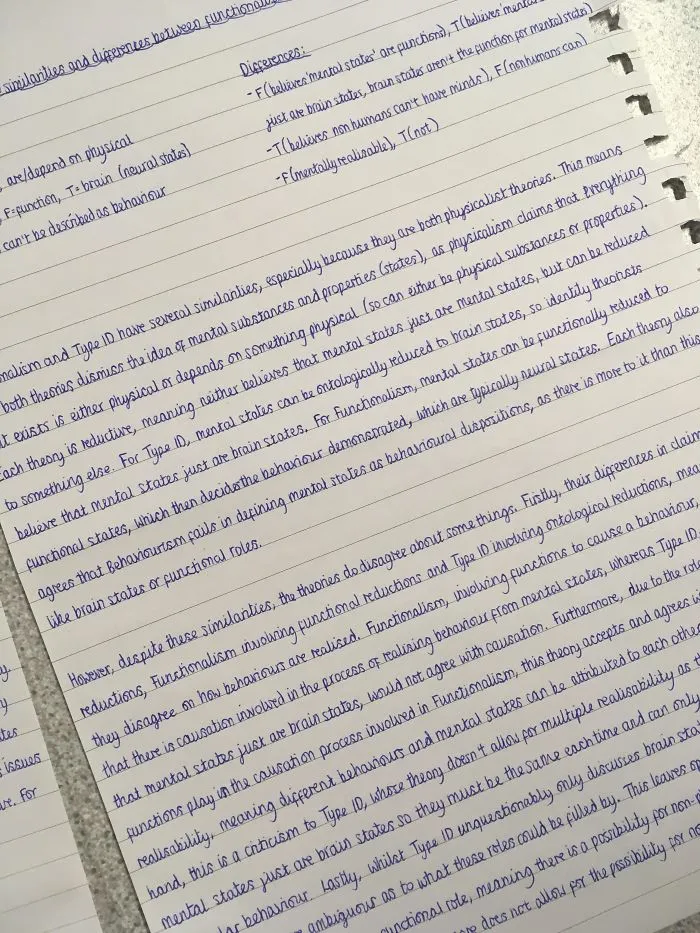 similarities and differences between functional
Differences:
- F(believes 'mental states' are functions), T(believes 'mental
just are brain states, brain states aren't the function for mental states)
-T(believes non humans can't have minds), F(nonhumans can)
-F(mentally realisable), T(not)
are/depend on physical
F=function, T=brain (neural states)
can't be described as behaviour
and Type ID have several similarities, especially because they are both physicalist theories. This means
both theories dismiss the idea of mental substances and properties (states), as physicalism claims that everything
exists is either physical or depends on something physical (so can either be physical substances or properties).
Each theory is reductive, meaning neither believes that mental states just are mental states, but can be reduced
to something else. For Type ID, mental states can be ontologically reduced to brain states, so identity theorists
believe that mental states just are brain states. For Functionalism, mental states can be functionally reduced to
functional states, which then decides the behaviour demonstrated, which are typically neural states. Each theory also
agrees that Behaviourism fails in defining mental states as behavioural dispositions, as there is more to it than this
like brain states or functional roles.
However, despite these similarities, the theories do disagree about some things. Firstly, their differences in
reductions, Functionalism involving functional reductions and Type ID involving ontological reductions,
they disagree on how behaviours are realised. Functionalism, involving functions to cause a behaviour,
that there is causation involved in the process of realising behaviour from mental states, whereas Type ID
that mental states just are brain states, would not agree with causation. Furthermore, due to the
functions play in the causation process involved in Functionalism, this theory accepts and agrees
realisability, meaning different behaviours and mental states can be attributed to each other
hand, this is a criticism to Type ID, whose theory doesn't allow for multiple realisability as
mental states just are brain states so they must be the same each time and can only
behaviour. Lastly, whilst Type ID unquestionably only discusses brain
ambiguous as to what these roles could be filled by. This leaves
functional role, meaning there is a possibility for
does not allow for the possibility for
issues
For